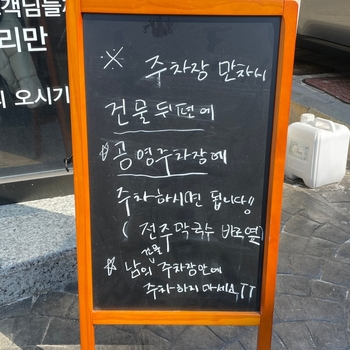 객님들
리만
오시기
※ 주차장 만차시
건물뒤편에
☆공영주차장에
주차하시면 됩니다!!
(전주막국수 바로옆)
☆ 남의 건물 주차장안에
주차하지마세요,TT